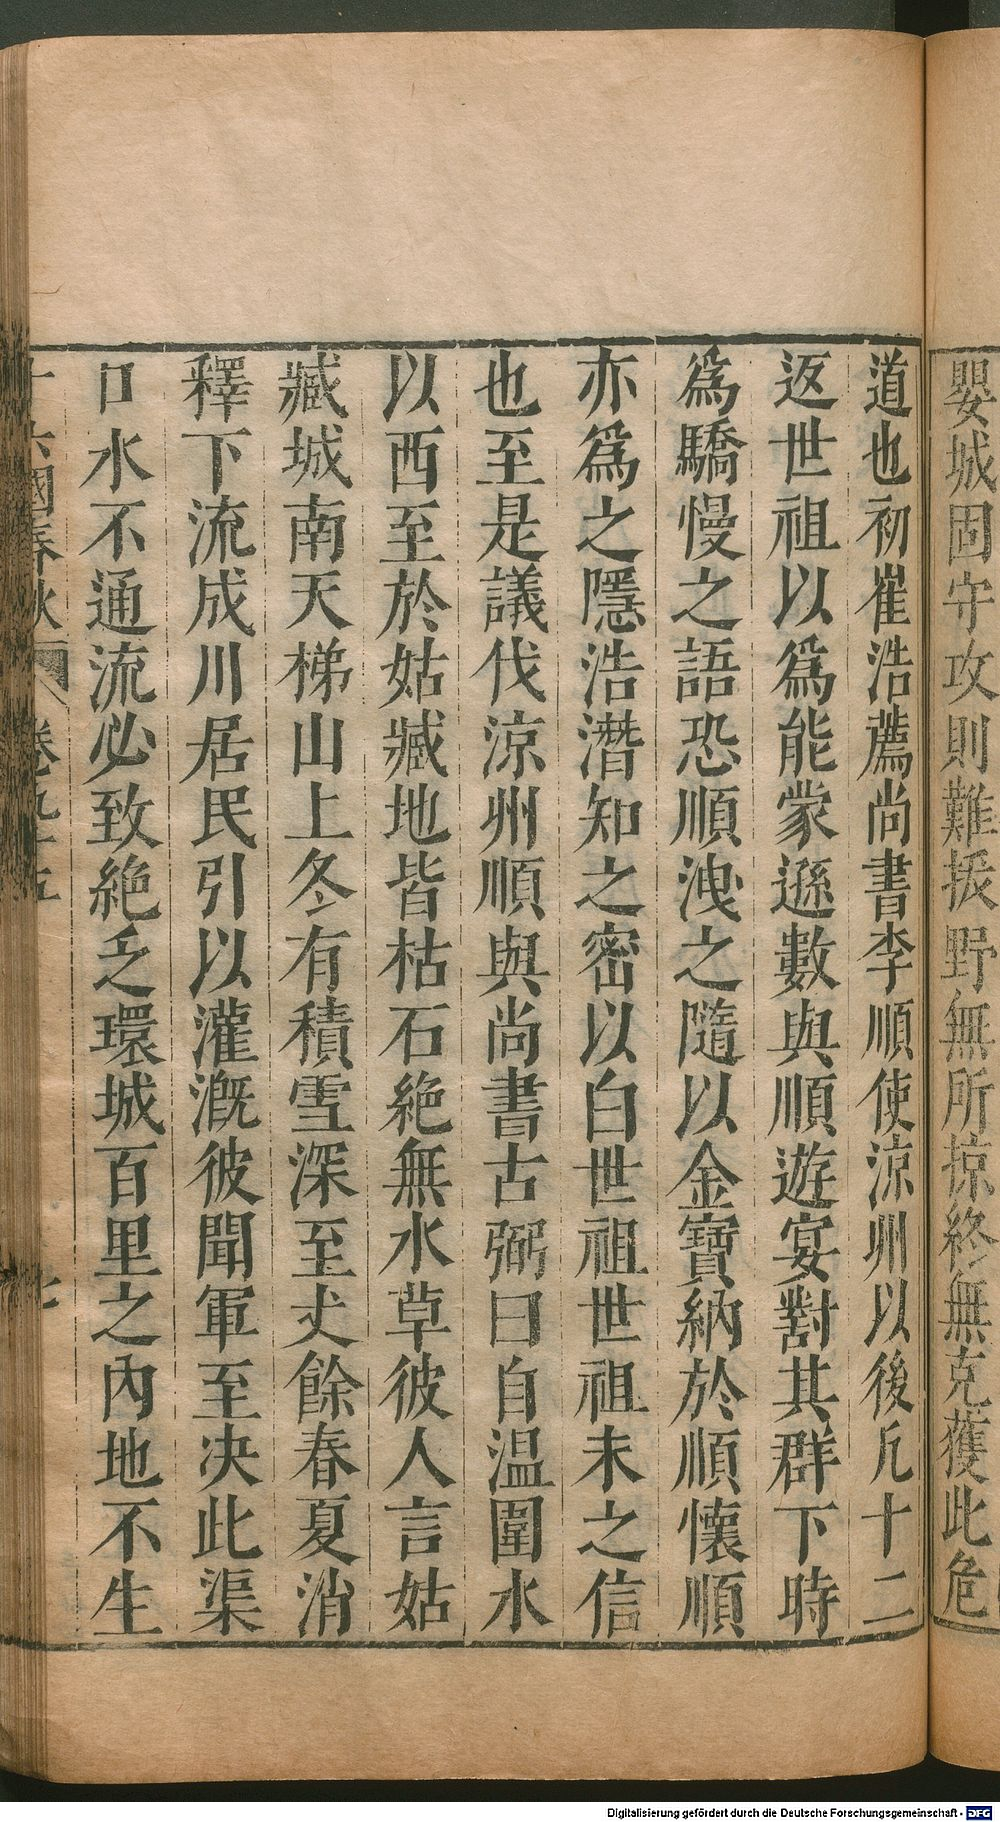 嬰城固守攻則難拔野無所掠終無克獲此危
道也初崔浩薦尚書李順使涼州以後凡十二
返世祖以為能蒙遜數與順遊宴對其群下時
為驕慢之語恐順洩之隨以金寶納於順懷順
亦為之隱浩潛知之密以白世祖世祖未之信
也至是議伐涼州順與尚書古弼曰自温圍水
以西至於姑臧地皆枯石絶無水草彼人言姑
臧城南天梯山上冬有積雪深至丈餘春夏消
釋下流成川居民引以灌溉彼聞軍至决此渠
口水不通流必致絶乏環城百里之內地不生
十六國春秋 卷九十五 七
Digitalisierung gefördert durch die Deutsche Forschungsgemeinschaft - DFG